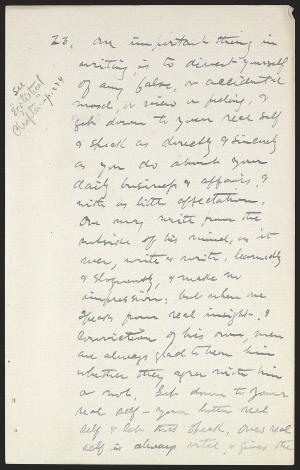 see
"Egotistical
Chapter" - p. 274
23. One important thing in
writing, is to divest yourself
of any false, or accidental
mood, or view or feeling, &
get down to your real self
& speak as directly & sincerely
as you do about your
daily business & affairs, &
with as little affectation.
One may write from the
outside of his mind, as it
were, write & write, learnedly
& eloquently, & make no
impression: but when one
speaks from real insight, &
conviction of his own, men
are always glad to hear him
whether they agree with him
or not. Get down to your
real self – your better real
self & let that speak. One's real
self is always vital & gives the